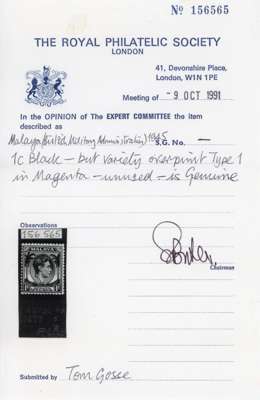 No 156565
THE ROYAL PHILATELIC SOCIETY
LONDON
41, Devonshire Place,
London, W1N 1PE
Meeting of -9 OCT 1991
In the OPINION of The EXPERT COMMITTEE the item
described as
Malaya (British Military Administration) 1945 S.G. No. —
1c Black – but variety overprint Type 1
in Magenta – unused – is Genuine
Observations
156565
MALAYA
Chairman
Submitted by Tom Gosse